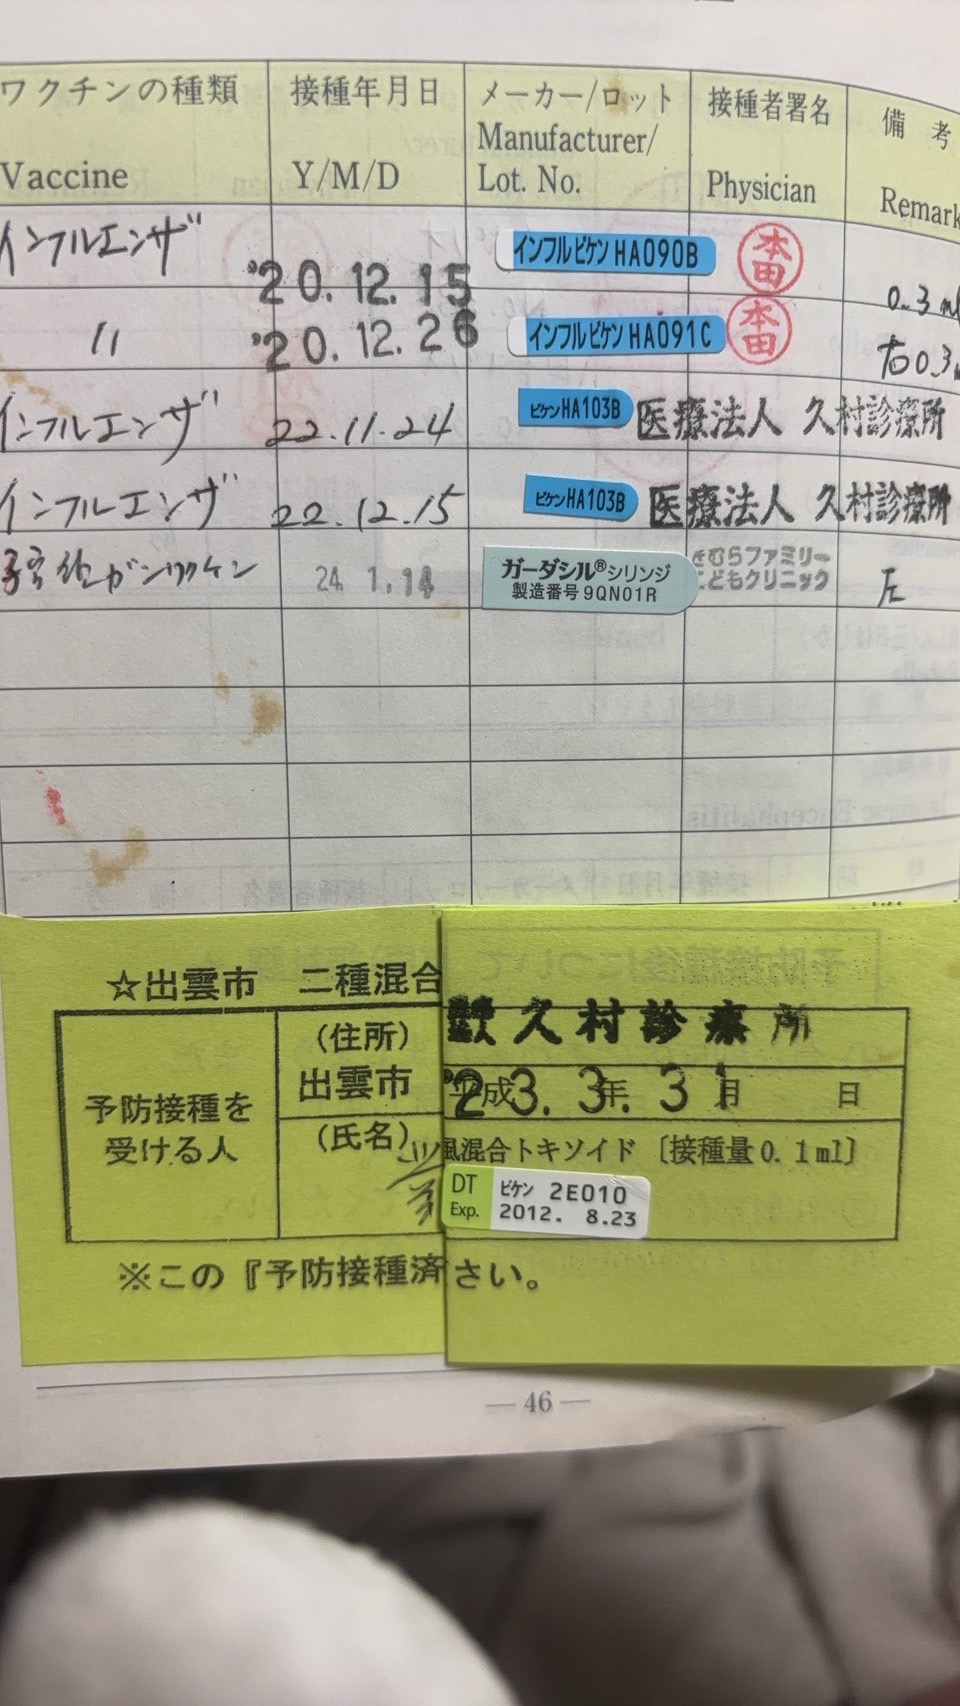 ワクチンの種類 接種年月日 メーカー/ロット 接種者署名 備考
Vaccine Y/M/D Manufacturer/ Lot. No. Physician Remark
インフルエンザ '20.12.15 インフルビケン HA090B 本田 0.3ml
〃 '20.12.26 インフルビケン HA091C 本田 右0.3
インフルエンザ 22.11.24 ビケンHA103B 医療法人 久村診療所
インフルエンザ 22.12.15 ビケンHA103B 医療法人 久村診療所
24. 1.14 ガーダシル®シリンジ きむらファミリー 左
製造番号 9QN01R こどもクリニック
☆出雲市 二種混合
久村診療所
予防接種を
受ける人
(住所)
出雲市
(氏名)
平成 年 月 日
'23.3.31
風混合トキソイド 〔接種量0.1ml〕
DT ビケン 2E010
Exp. 2012. 8.23
※この『予防接種済さい。
— 46 —